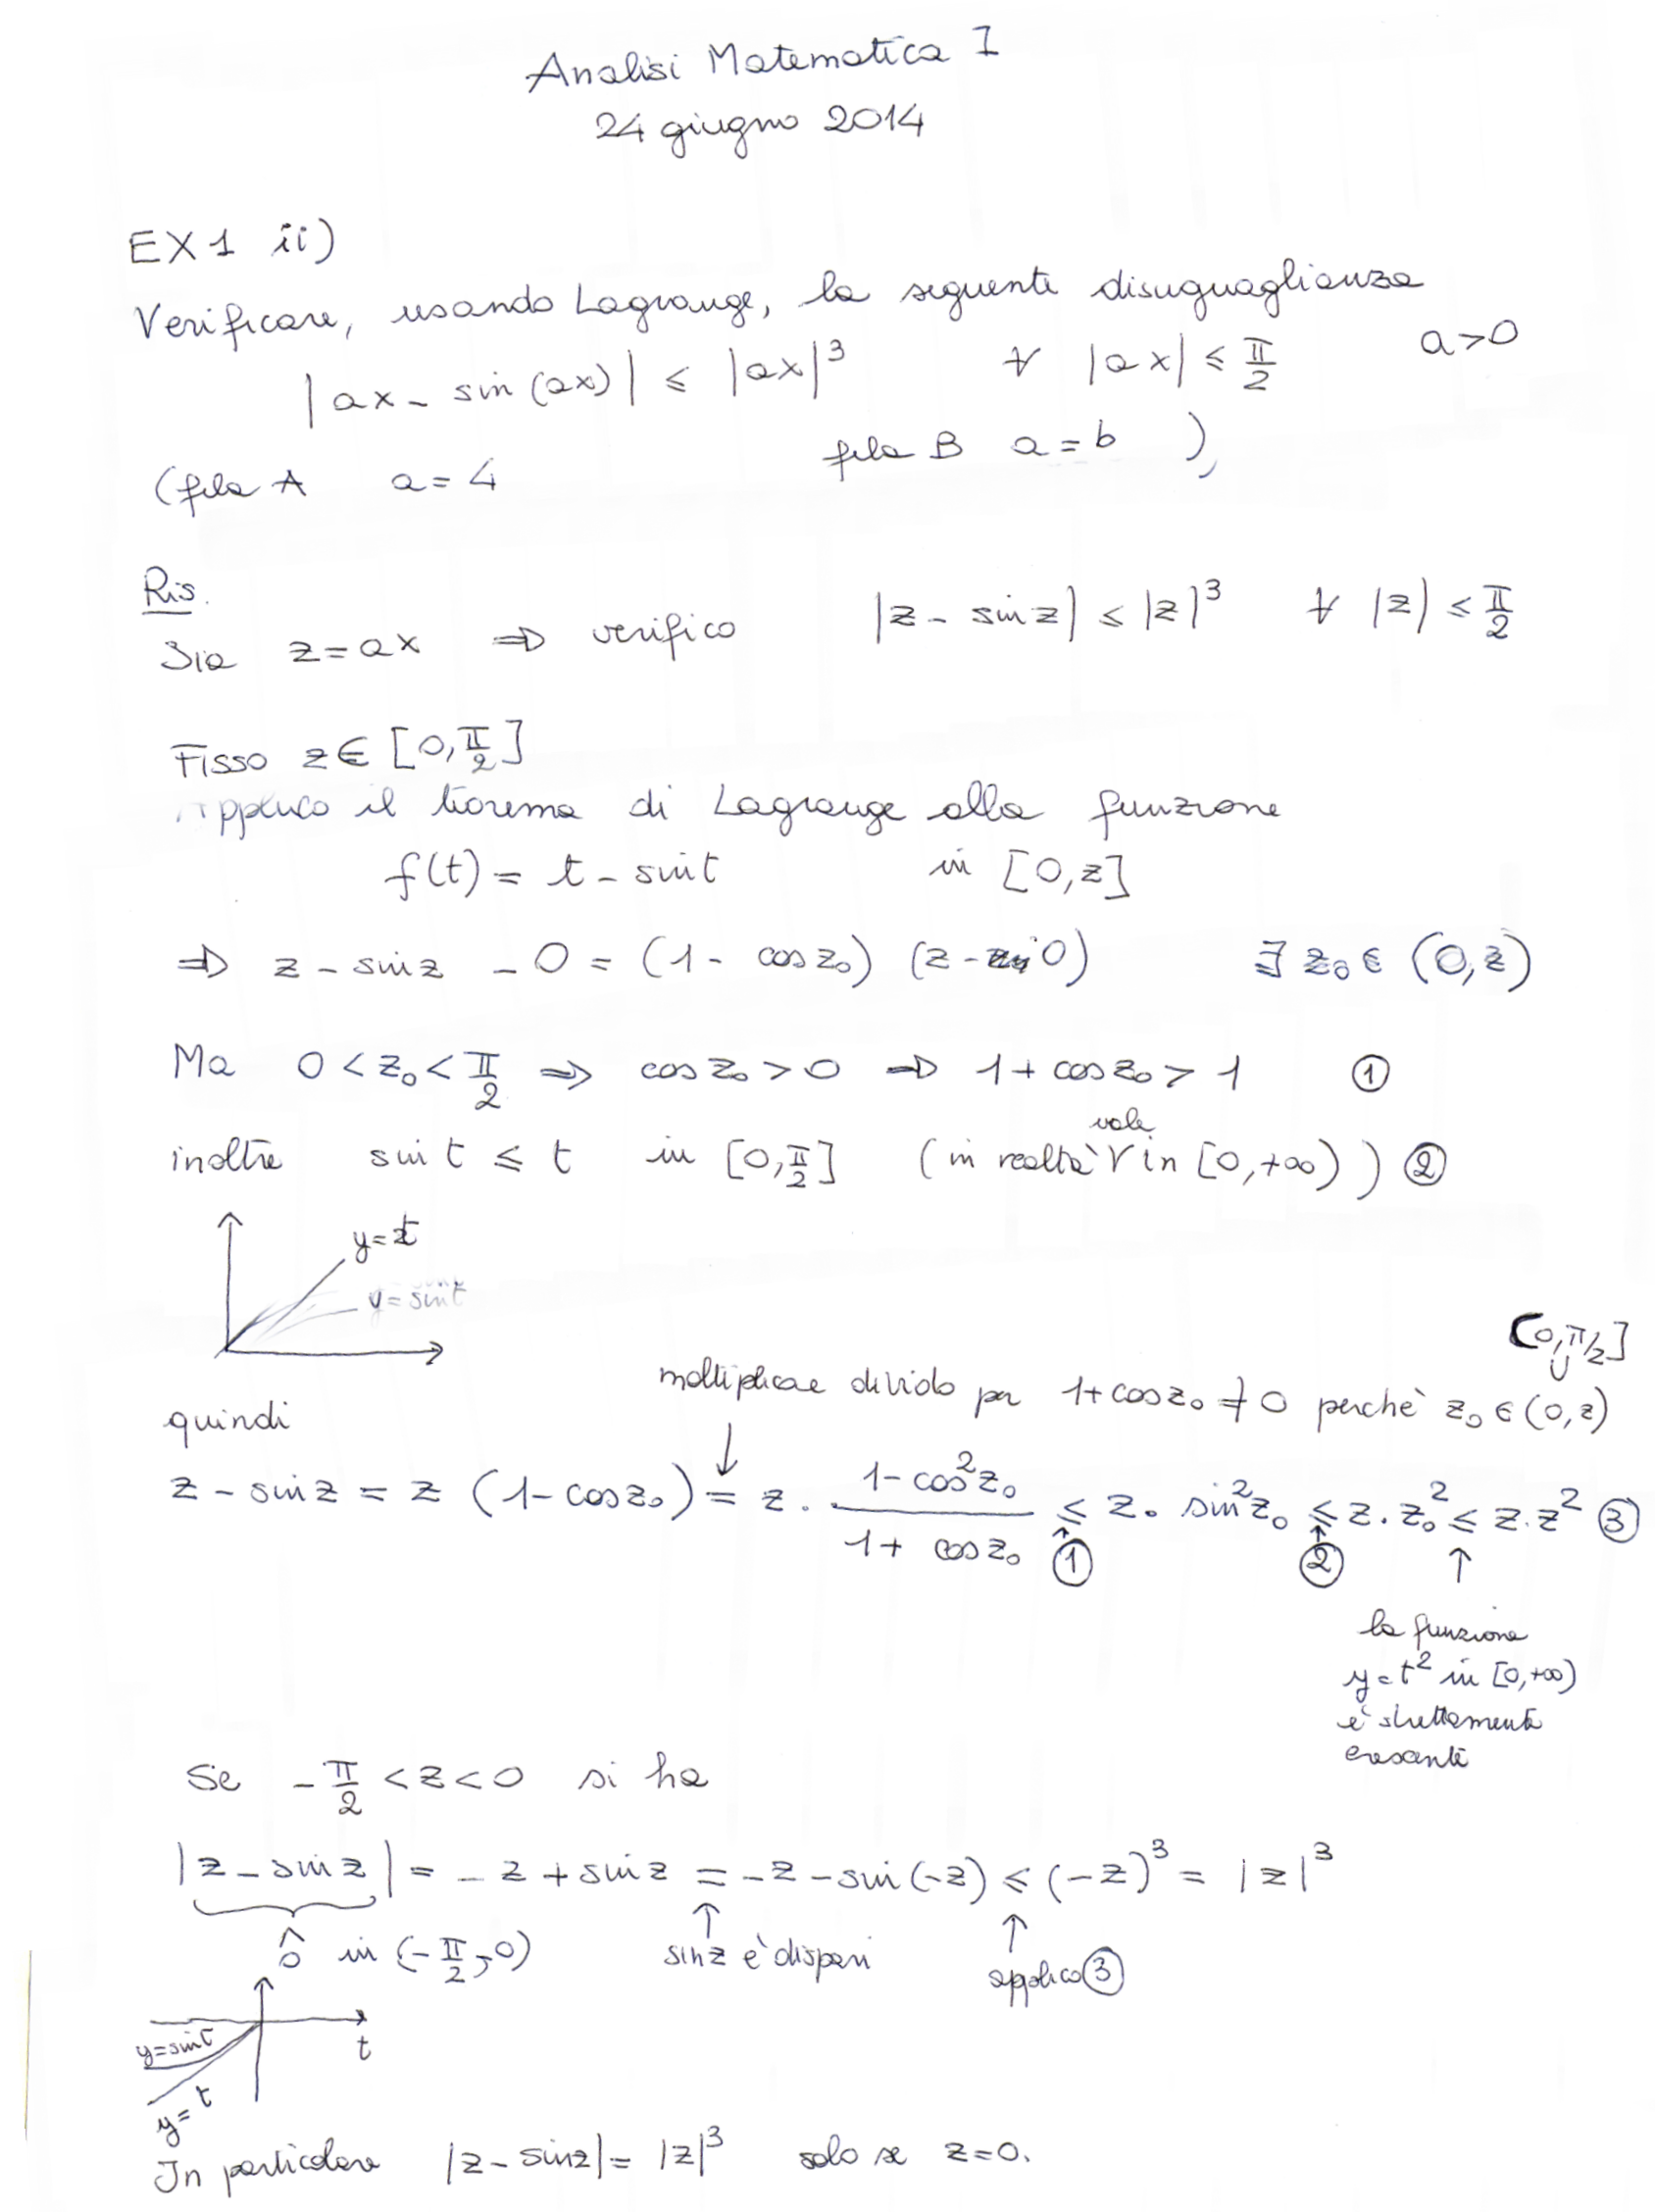 Analisi Matematica I
24 giugno 2014
EX1 ii)
Verificare, usando Lagrange, la seguente disuguaglianza
|ax - sin(ax)| ≤ |ax|³ ∀ |ax| ≤ π/2 a>0
(fila A a=4 fila B a=b ),
Ris.
Sia z=ax ⇒ verifico |z - sin z| ≤ |z|³ ∀ |z| ≤ π/2
Fisso z∈ [0,π/2]
Applico il teorema di Lagrange alla funzione
f(t) = t - sin t in [0,z]
⇒ z - sin z - 0 = (1 - cos z₀) (z - 0) ∃ z₀ ∈ (0,z)
Ma 0 < z₀ < π/2 ⇒ cos z₀ > 0 ⇒ 1 + cos z₀ > 1 ①
inoltre sin t ≤ t in [0,π/2] (in realtà vale in [0,+∞)) ②
y=t
y=sin t
[0,π/2]
∪
moltiplico e divido per 1+cos z₀ ≠ 0 perchè z₀ ∈ (0,z)
quindi ↓
z - sin z = z (1-cos z₀) = z · (1 - cos² z₀)/(1 + cos z₀) ≤ z · sin² z₀ ≤ z · z₀² ≤ z · z² ③
↑ ① ↑ ② ↑
la funzione
y=t² in [0,+∞)
è strettamente
crescente
Se -π/2 < z < 0 si ha
|z - sin z| = - z + sin z = -z - sin(-z) ≤ (-z)³ = |z|³
∧ ↑ ↑
0 in (-π/2,0) sin z è dispari applico ③
y=sin t
t
y=t
In particolare |z - sin z| = |z|³ solo se z=0.